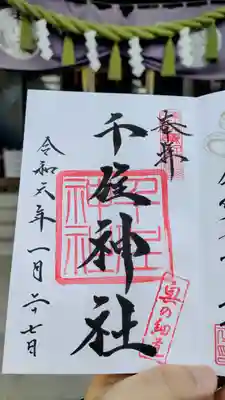 奉拝
千住神社
令和六年一月二十七日
千住神社
奥の細道